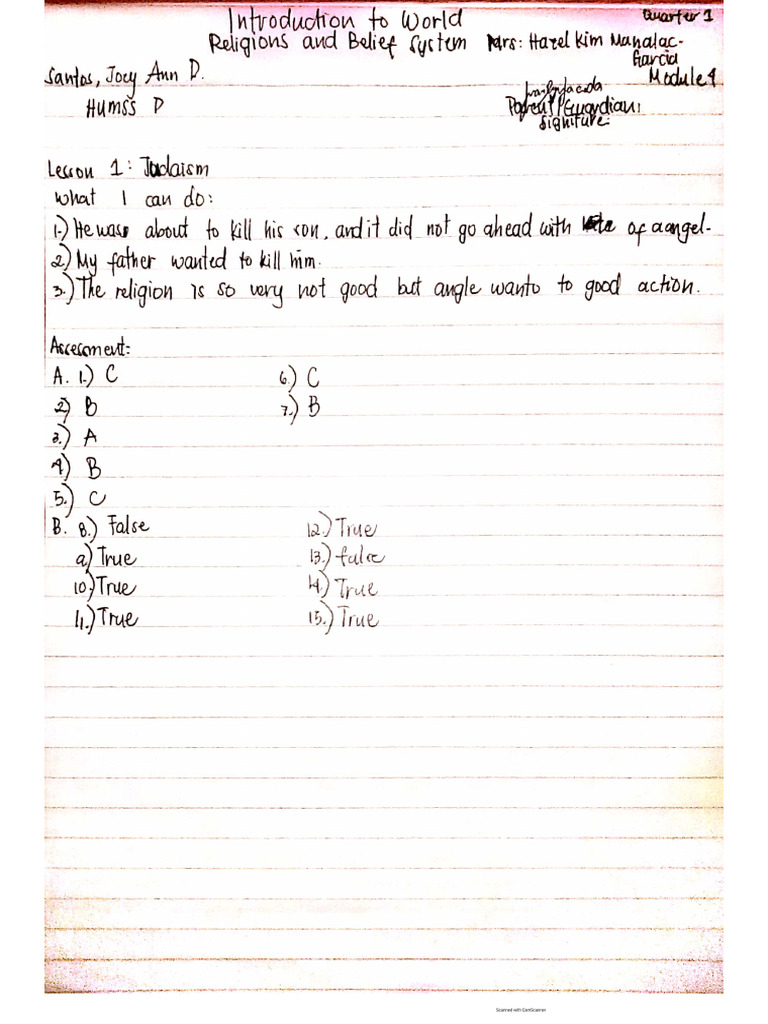 Introduction to World
Quarter 1
Religions and Belief System Mrs: Hazel Kim Manalac-
Garcia
Santos, Joey Ann D.
Module 4
HUMSS D
Parent/Guardian:
Signiture:
Lesson 1: Judaism
What I can do:
1.) He was about to kill his son, and it did not go ahead with of aangel.
2.) My father wanted to kill him.
3.) The religion is so very not good but angle wanto to good action.
Assessment:
A. 1.) C 6.) C
2) B 7.) B
3.) A
4) B
5.) C
B. 8.) False 12.) True
9.) True 13.) false
10.) True 14.) True
11.) True 15.) True
Scanned with CamScanner